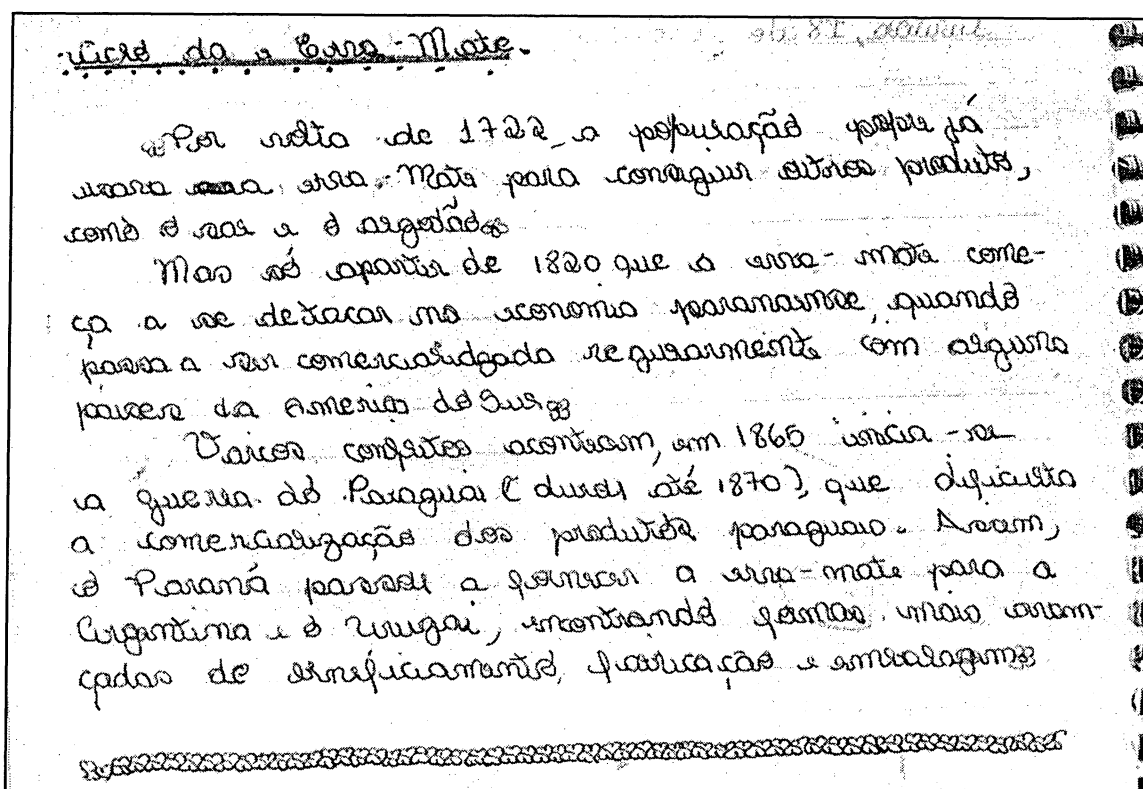 Ciclo da Erva-Mate.
Por volta de 1722 a população pobre já
usava a erva-Mate para conseguir outros produto,
como o sal e o algodão
Mas só apartir de 1820 que a erva-mate come-
ça a se detacar na economia paranaense, quando
passa a ser comercializada regularmente com alguns
países da America do Sul
conflitos acontecem, em 1865 inicia-se
a guerra do Paraguai (durou até 1870), que dificulta
a comercialização dos produtos paraguaio. Assim,
o Paraná passou a fornecer a erva-mate para a
Argentina e o Urugai, encontrando formas mais avan-
çadas de beneficiamento, fabricação e embalagem